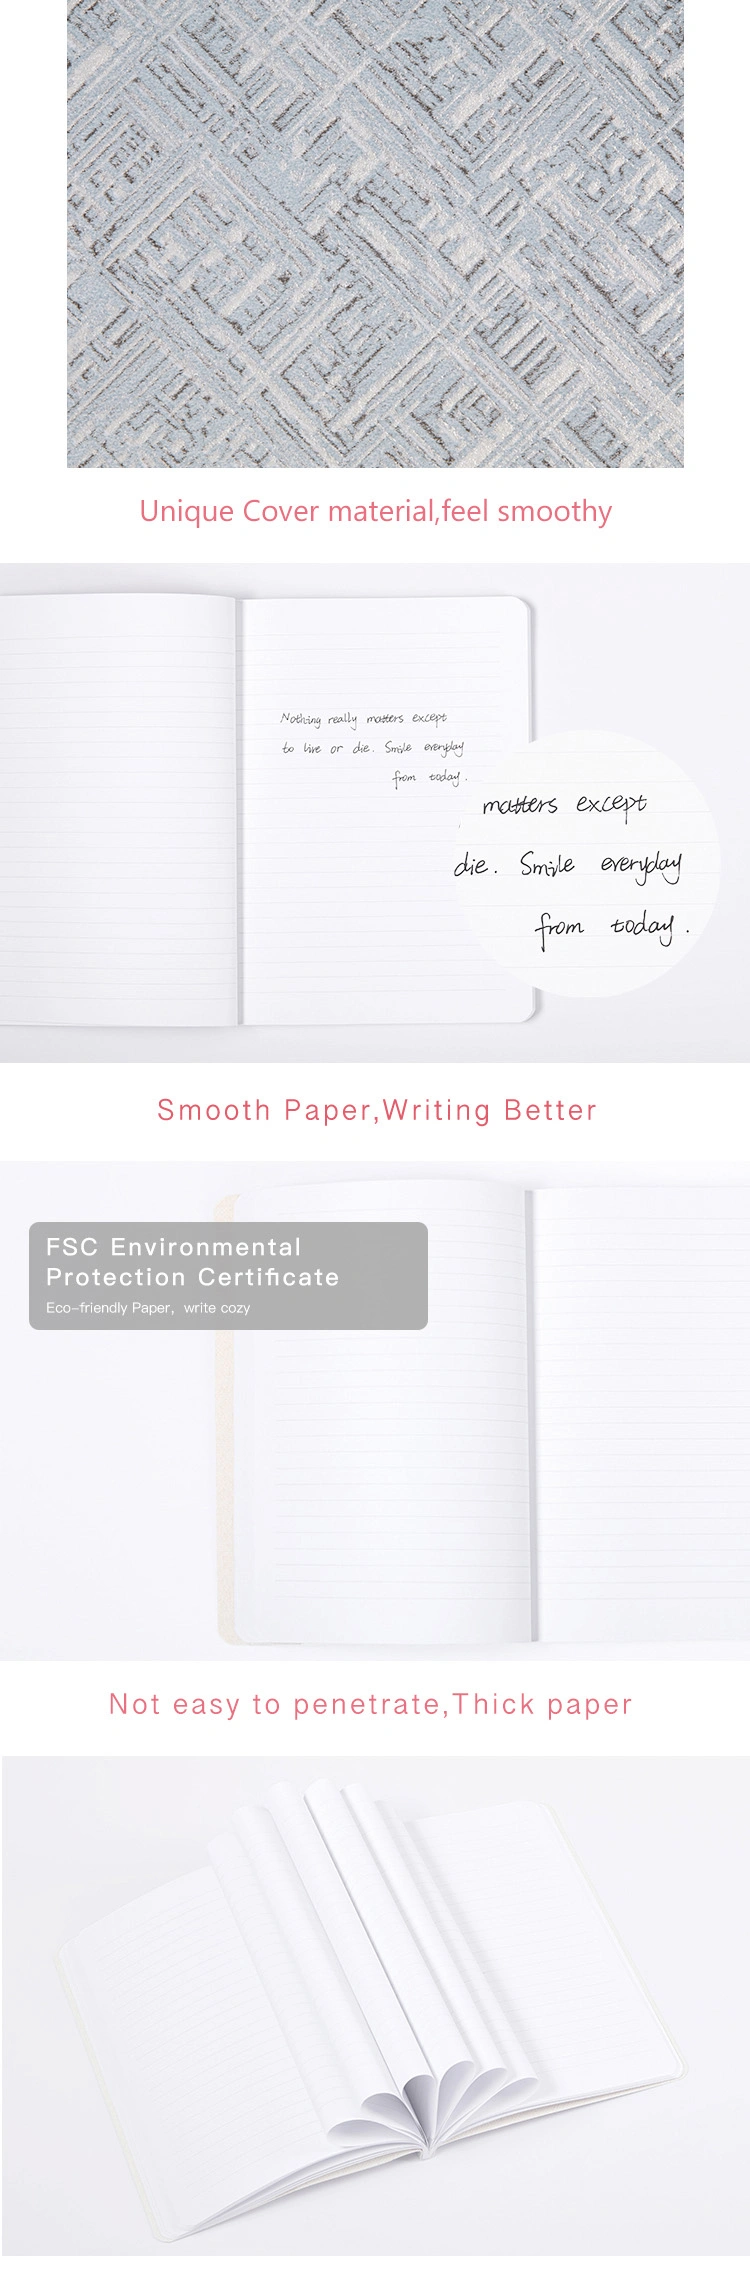 Unique Cover material,feel smoothy
Nothing really matters except
to live or die. Smile everyday
from today.
matters except
die. Smile everyday
from today.
Smooth Paper,Writing Better
FSC Environmental
Protection Certificate
Eco-friendly Paper, write cozy
Not easy to penetrate,Thick paper